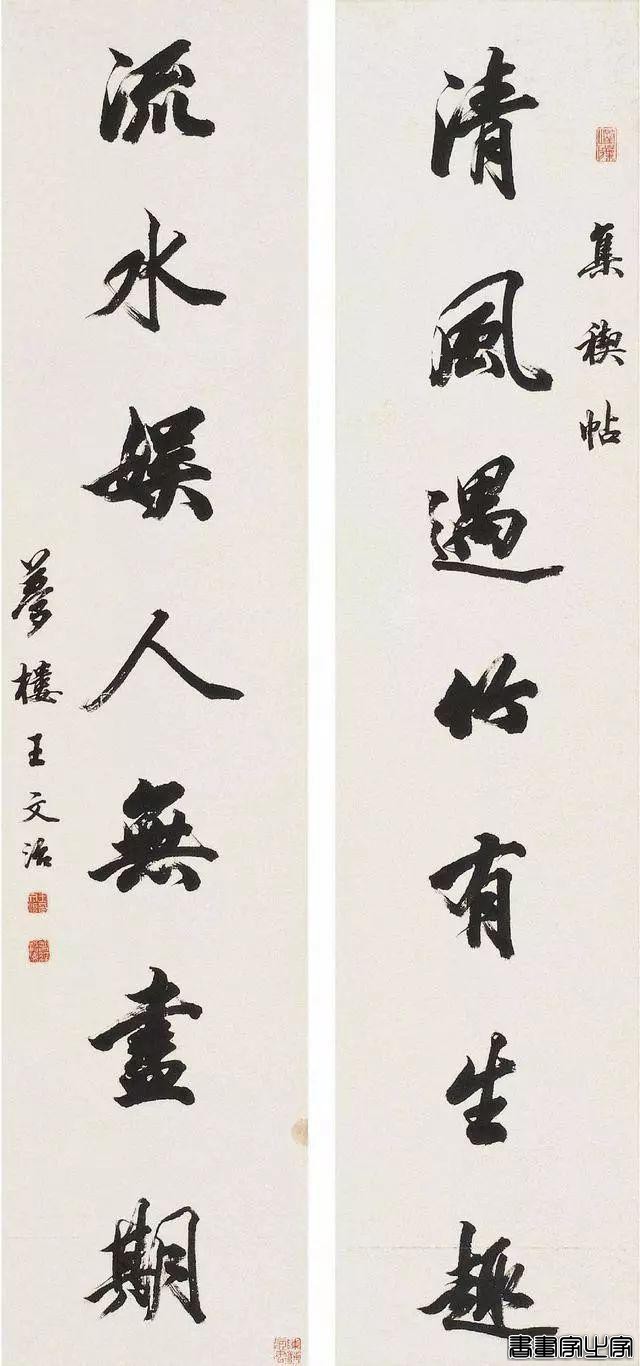 集禊帖
清風遇竹有生趣
流水娱人無盡期
夢樓王文治
書畫家之家